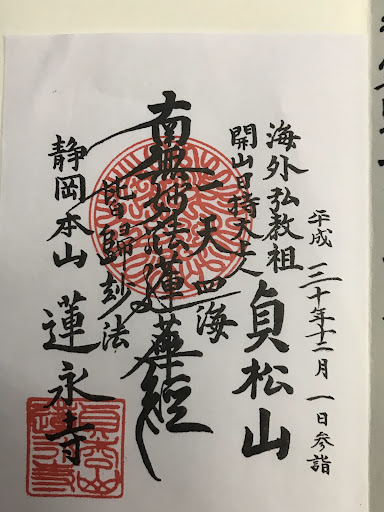 平成三十年十二月一日参詣
海外弘教祖
開山日持大上人
貞松山
一天四海
南無妙法蓮華経
皆歸妙法
静岡本山
蓮永寺